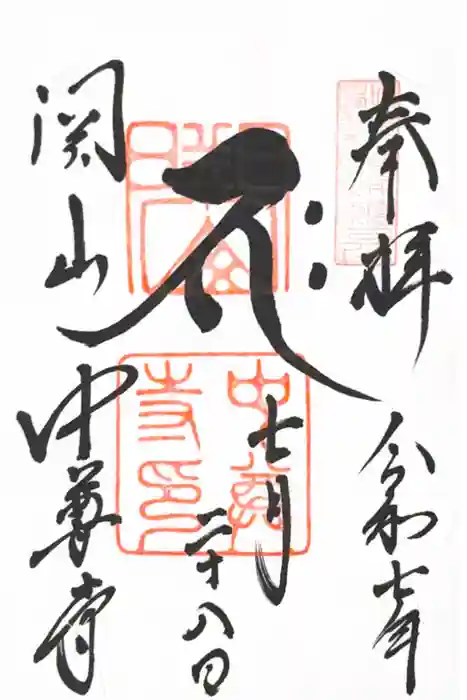 奉拝
令和七年
七月
二十八日
関山
中尊寺
中尊
寺印